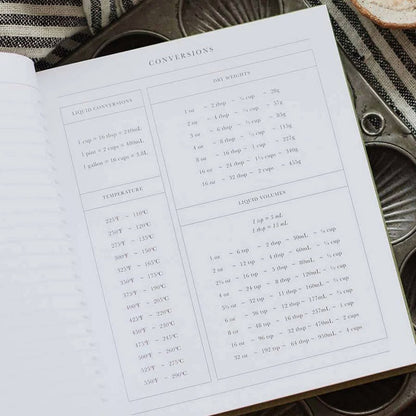 CONVERSIONS
LIQUID CONVERSIONS
1 cup = 16 tbsp = 240mL
1 pint = 2 cups = 480mL
1 gallon = 16 cups = 3.8L
TEMPERATURE
225°F ~ 110°C
250°F ~ 120°C
275°F ~ 135°C
300°F ~ 150°C
325°F ~ 165°C
350°F ~ 175°C
375°F ~ 190°C
400°F ~ 205°C
425°F ~ 220°C
450°F ~ 230°C
475°F ~ 245°C
500°F ~ 260°C
525°F ~ 275°C
550°F ~ 290°C
DRY WEIGHTS
1 oz ~ 2 tbsp ~ cup ~ 28g
2 oz ~ 4 tbsp ~ ¼ cup ~ 57g
3 oz ~ 6 tbsp ~ ⅓ cup ~ 85g
4 oz ~ 8 tbsp ~ ½ cup ~ 115g
8 oz ~ 16 tbsp ~ 1 cup ~ 227g
oz ~ 24 tbsp ~ 1½ cups ~ 340g
16 oz ~ 32 tbsp ~ 2 cups ~ 455g
LIQUID VOLUMES
1 tsp = 5 mL
1 tbsp = 15 mL
1 oz ~ 6 tsp ~ 2 tbsp ~ 30mL ~ cup
2 oz ~ 12 tsp ~ 4 tbsp ~ 60mL ~ ¼ cup
16 tsp ~ 5 tbsp ~ 80mL ~ ⅓ cup
4 oz ~ 24 tsp ~ 8 tbsp ~ 120mL ~ ½ cup
32 tsp ~ 11 tbsp ~ 160mL ~ cup
6 oz ~ 36 tsp ~ 12 tbsp ~ 177mL ~ ¾ cup
8 oz ~ 48 tsp ~ 16 tbsp ~ 237mL ~ 1 cup
16 oz ~ 96 tsp ~ 32 tbsp ~ 470mL ~ 2 cups
32 oz ~ 192 tsp ~ 64 tbsp ~ 950mL ~ 4 cups